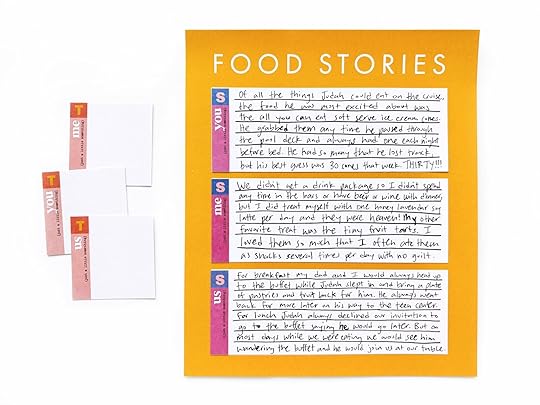 FOOD STORIES
T
me
T
you
T
us
S
you
Of all the things Judah could eat on the cruise,
the food he was most excited about was
the all you can eat soft serve ice cream cones.
He grabbed them any time he passed through
the pool deck and always had one each night
before bed. He had so many that he lost track,
but his best guess was 30 cones that week. THIRTY!!!
S
me
We didn't get a drink package so I didn't spend
any time in the bars or have beer or wine with dinner,
but I did treat myself with one honey lavender soy
latte per day and they were heaven! My other
favorite treat was the tiny fruit tarts. I
loved them so much that I often ate them
as snacks several times per day with no guilt.
S
us
For breakfast my dad and I would always head up
to the buffet while Judah slept in and bring a plate
of pastries and fruit back for him. He always went
back for more later on his way to the teen center.
For lunch Judah always declined our invitation to
go to the buffet saying he would go later. But on
most days while we were eating we would see him
wandering the buffet and he would join us at our table.